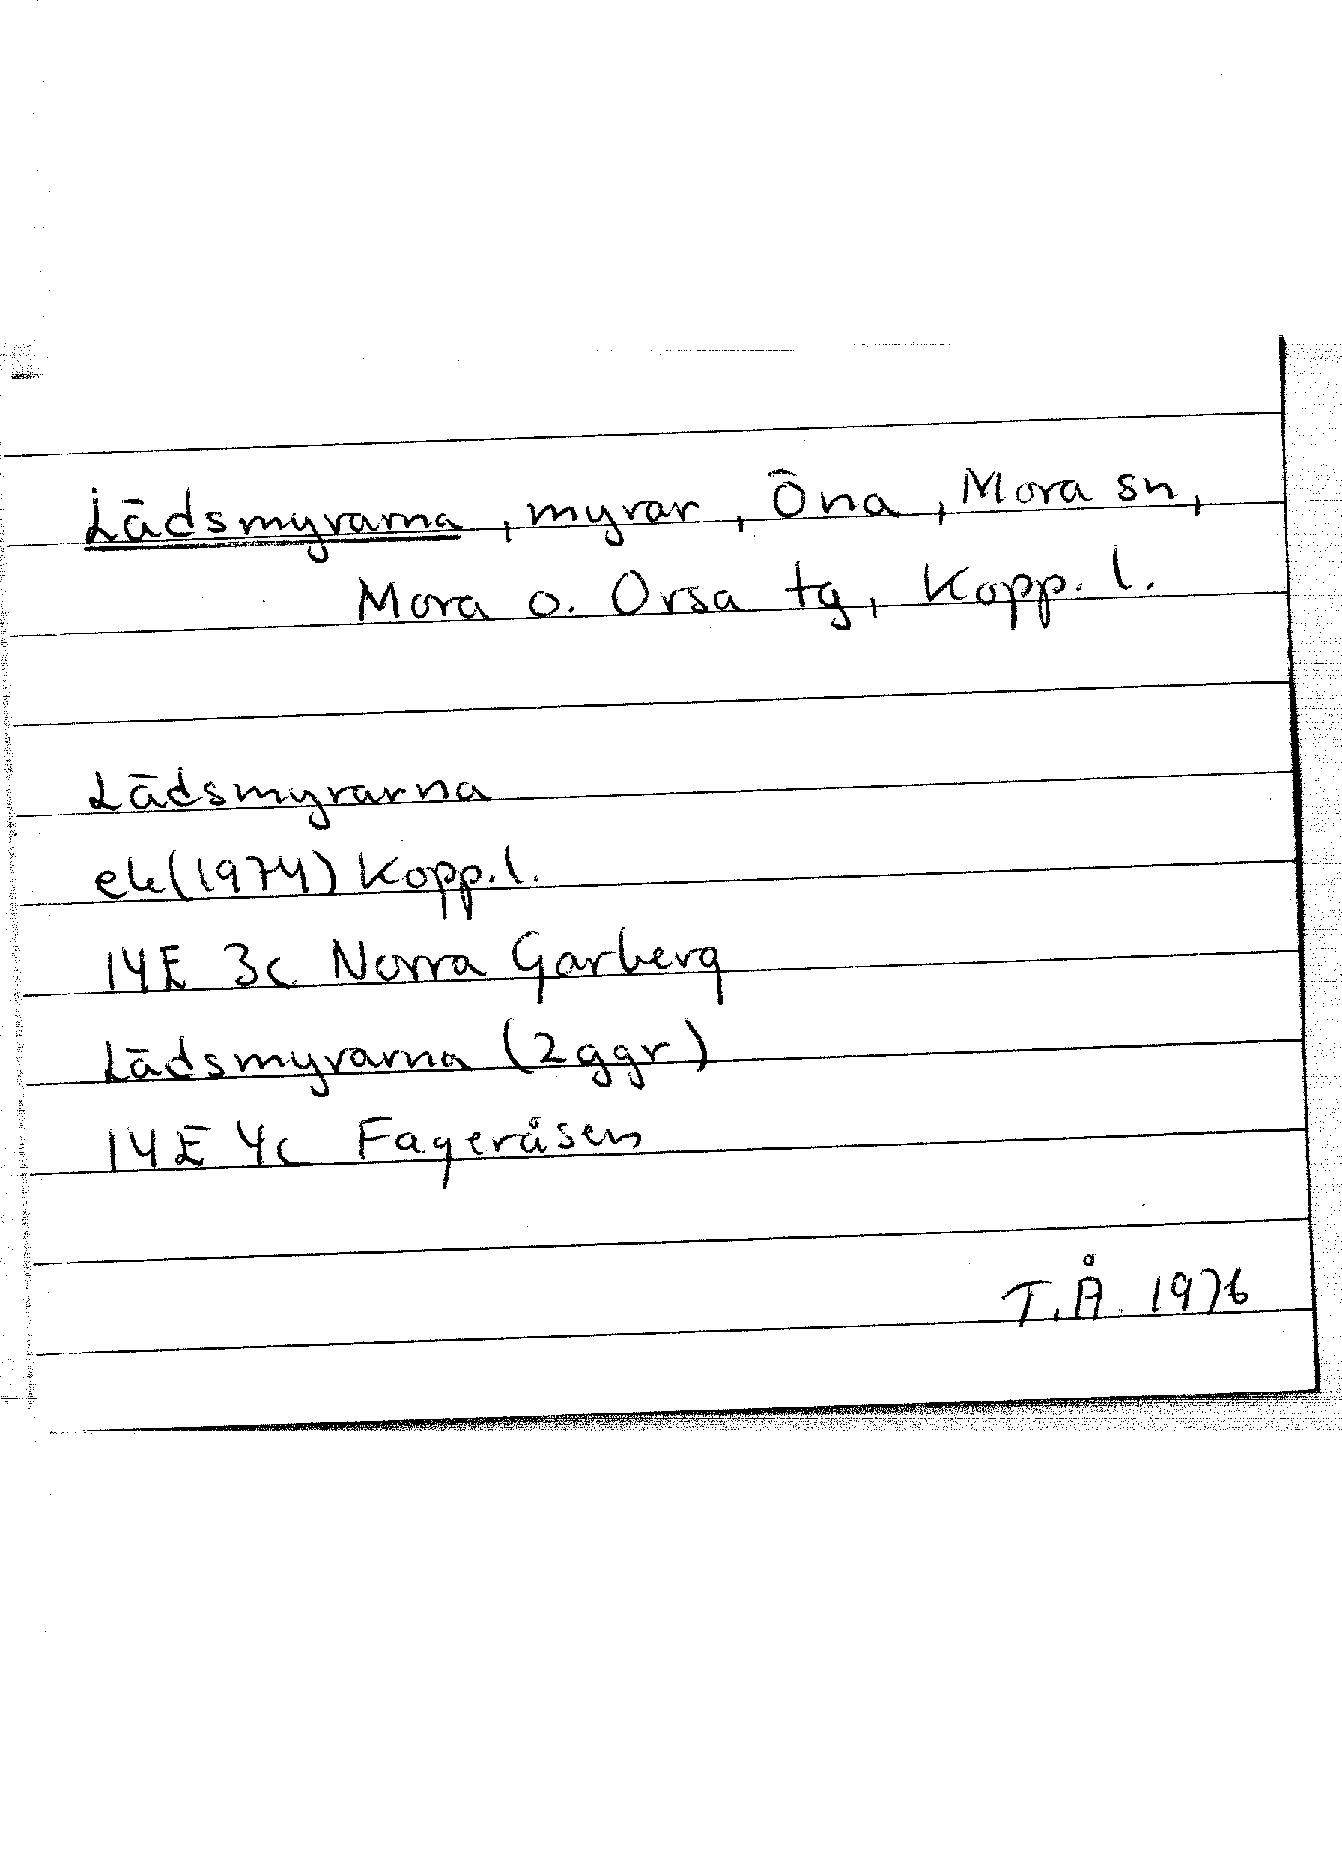 Lädsmyrarna, myrar, Öna, Mora sn,
Mora o. Orsa tg, Kopp. l.
Lädsmyrarna
ek (1974) Kopp. l.
14E 3c Norra Garberg
Lädsmyrarna (2 ggr)
14E 4c Fageråsen
T.Å. 1976